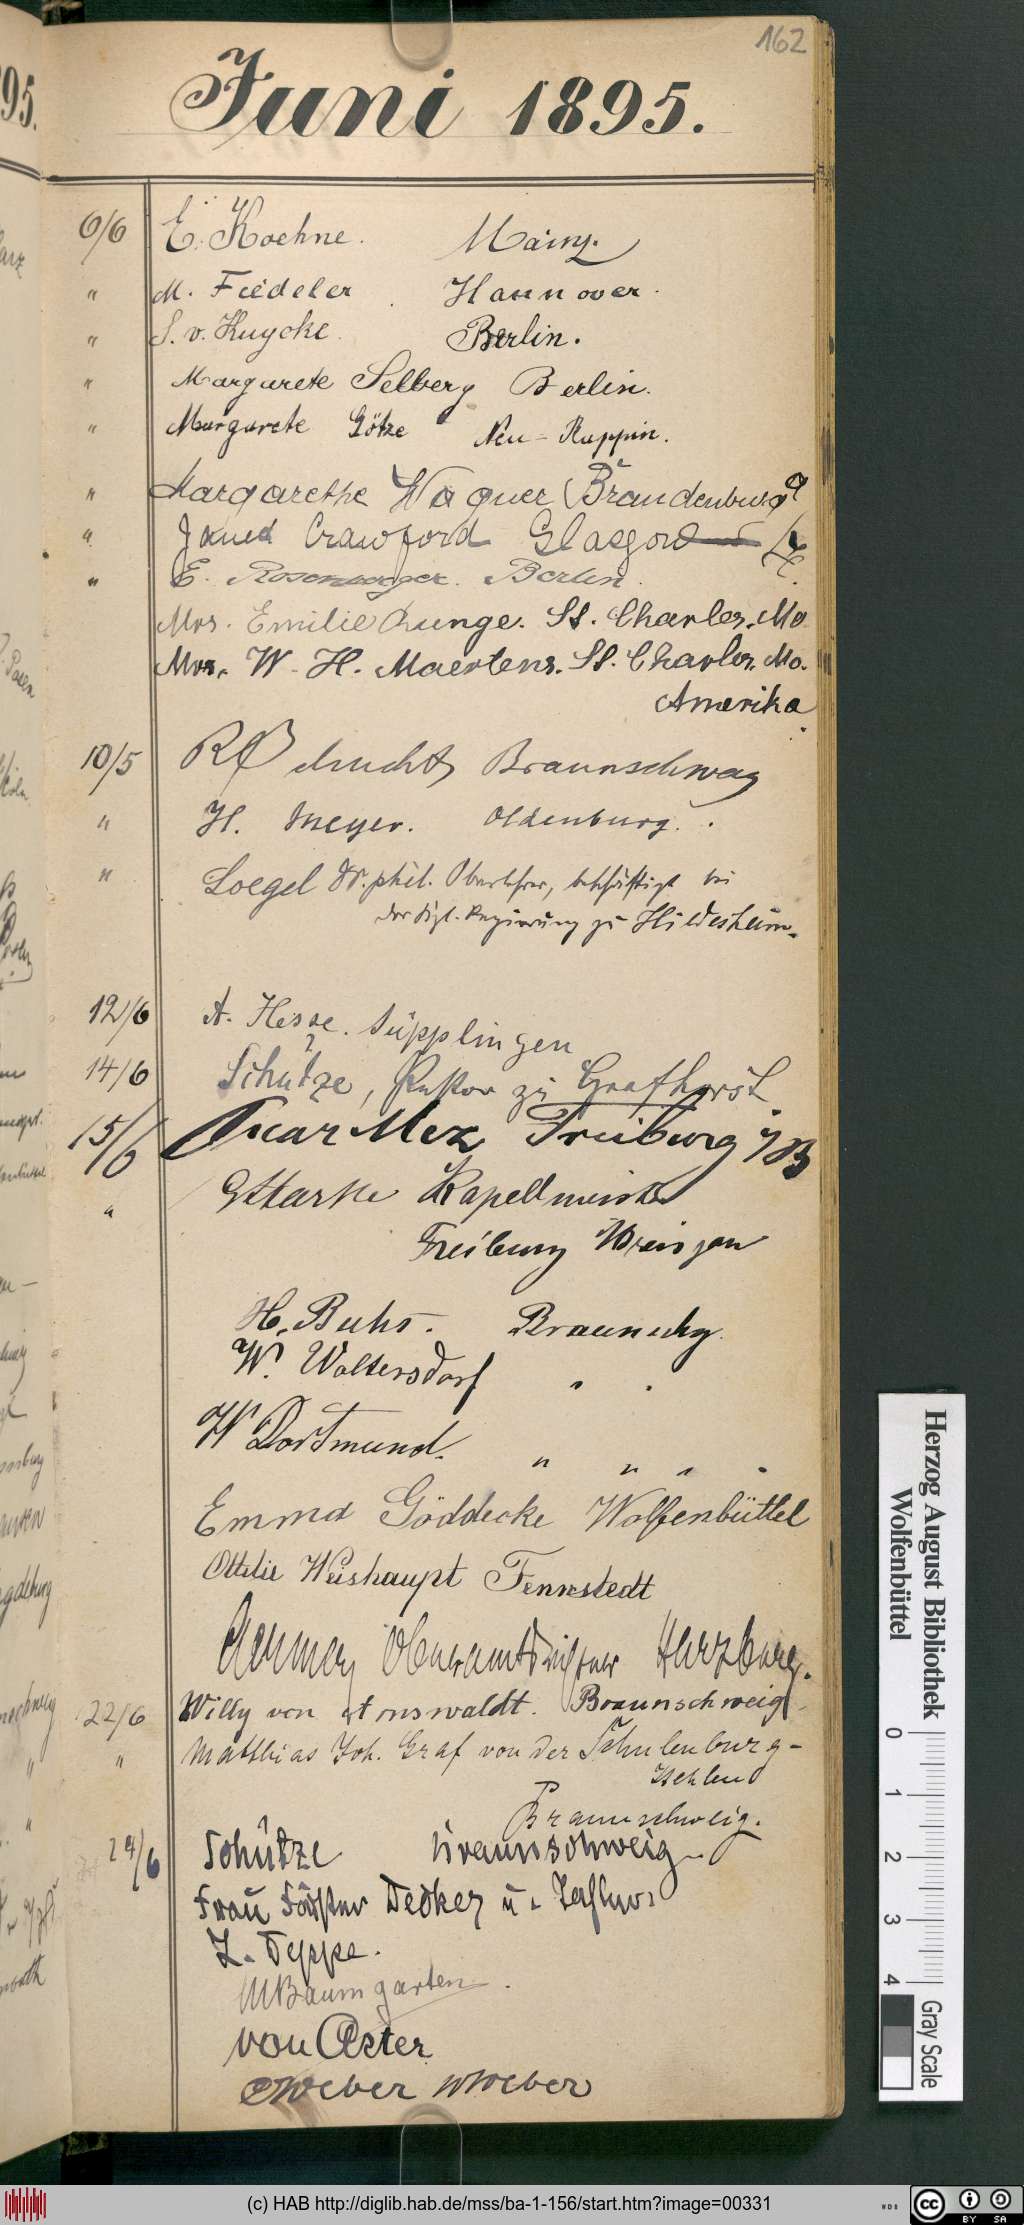 162
Juni 1895.
6/6 E. Koehne. Mainz.
" M. Fiedeler. Hannover.
" S. v. Kuycke. Berlin.
" Margarete Selberg Berlin.
" Margarete Götze Neu-Ruppin.
" Margarethe Wagner (Brandenburg a/
" Crawford Glasgow
" E. Rosenberger. Berlin.
Mrs. Emilie Runge. St. Charles, Mo
Mrs. W. H. Maertens. St. Charles, Mo.
Amerika
10/5 Braunschweig
" H. Meyer. Oldenburg.
" Loegel Dr. phil. Oberlehrer, beschäftigt bei
der Kgl. Regierung zu Hildesheim.
12/6 A. Hesse. Süpplingen
14/6 Schütze, Pastor zu Grafhorst
15/6 Oscar Mez Freiburg i/B
" Starke Kapellmeister
Freiburg Breisgau
H. Buhs. Braunschg.
W. Woltersdorf " "
W Dortmund. " " "
Emma Göddecke Wolfenbüttel
Ottilie Weishaupt Fennstedt
Oberamtsrichter Harzburg.
22/6 Willy von Arnswaldt. Braunschweig.
" Matthias Joh. Graf von der Schulenburg-
Braunschweig.
29/6 Schütze Braunschweig
Frau Förster Decker u. Tochter.
L. Deppe.
M Baumgarten.
von Aster
Weber W Weber
Herzog August Bibliothek
Wolfenbüttel
0 1 2 3 4
Gray Scale
(c) HAB http://diglib.hab.de/mss/ba-1-156/start.htm?image=00331
cc BY SA